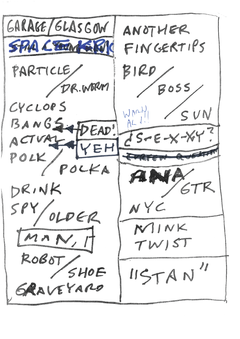 GARAGE/GLASGOW
PARTICLE/
DR. WORM
CYCLOPS
BANGS
DEAD!
ACTUAL
YEH
POLK/
POLKA
DRINK
SPY/
OLDER
MAN, I
ROBOT/
SHOE
GRAVEYARD
ANOTHER
FINGERTIPS
BIRD/
BOSS/
SUN
¿S-E-X-XY?
ANA/
GTR
NYC
MINK
TWIST
"STAN"